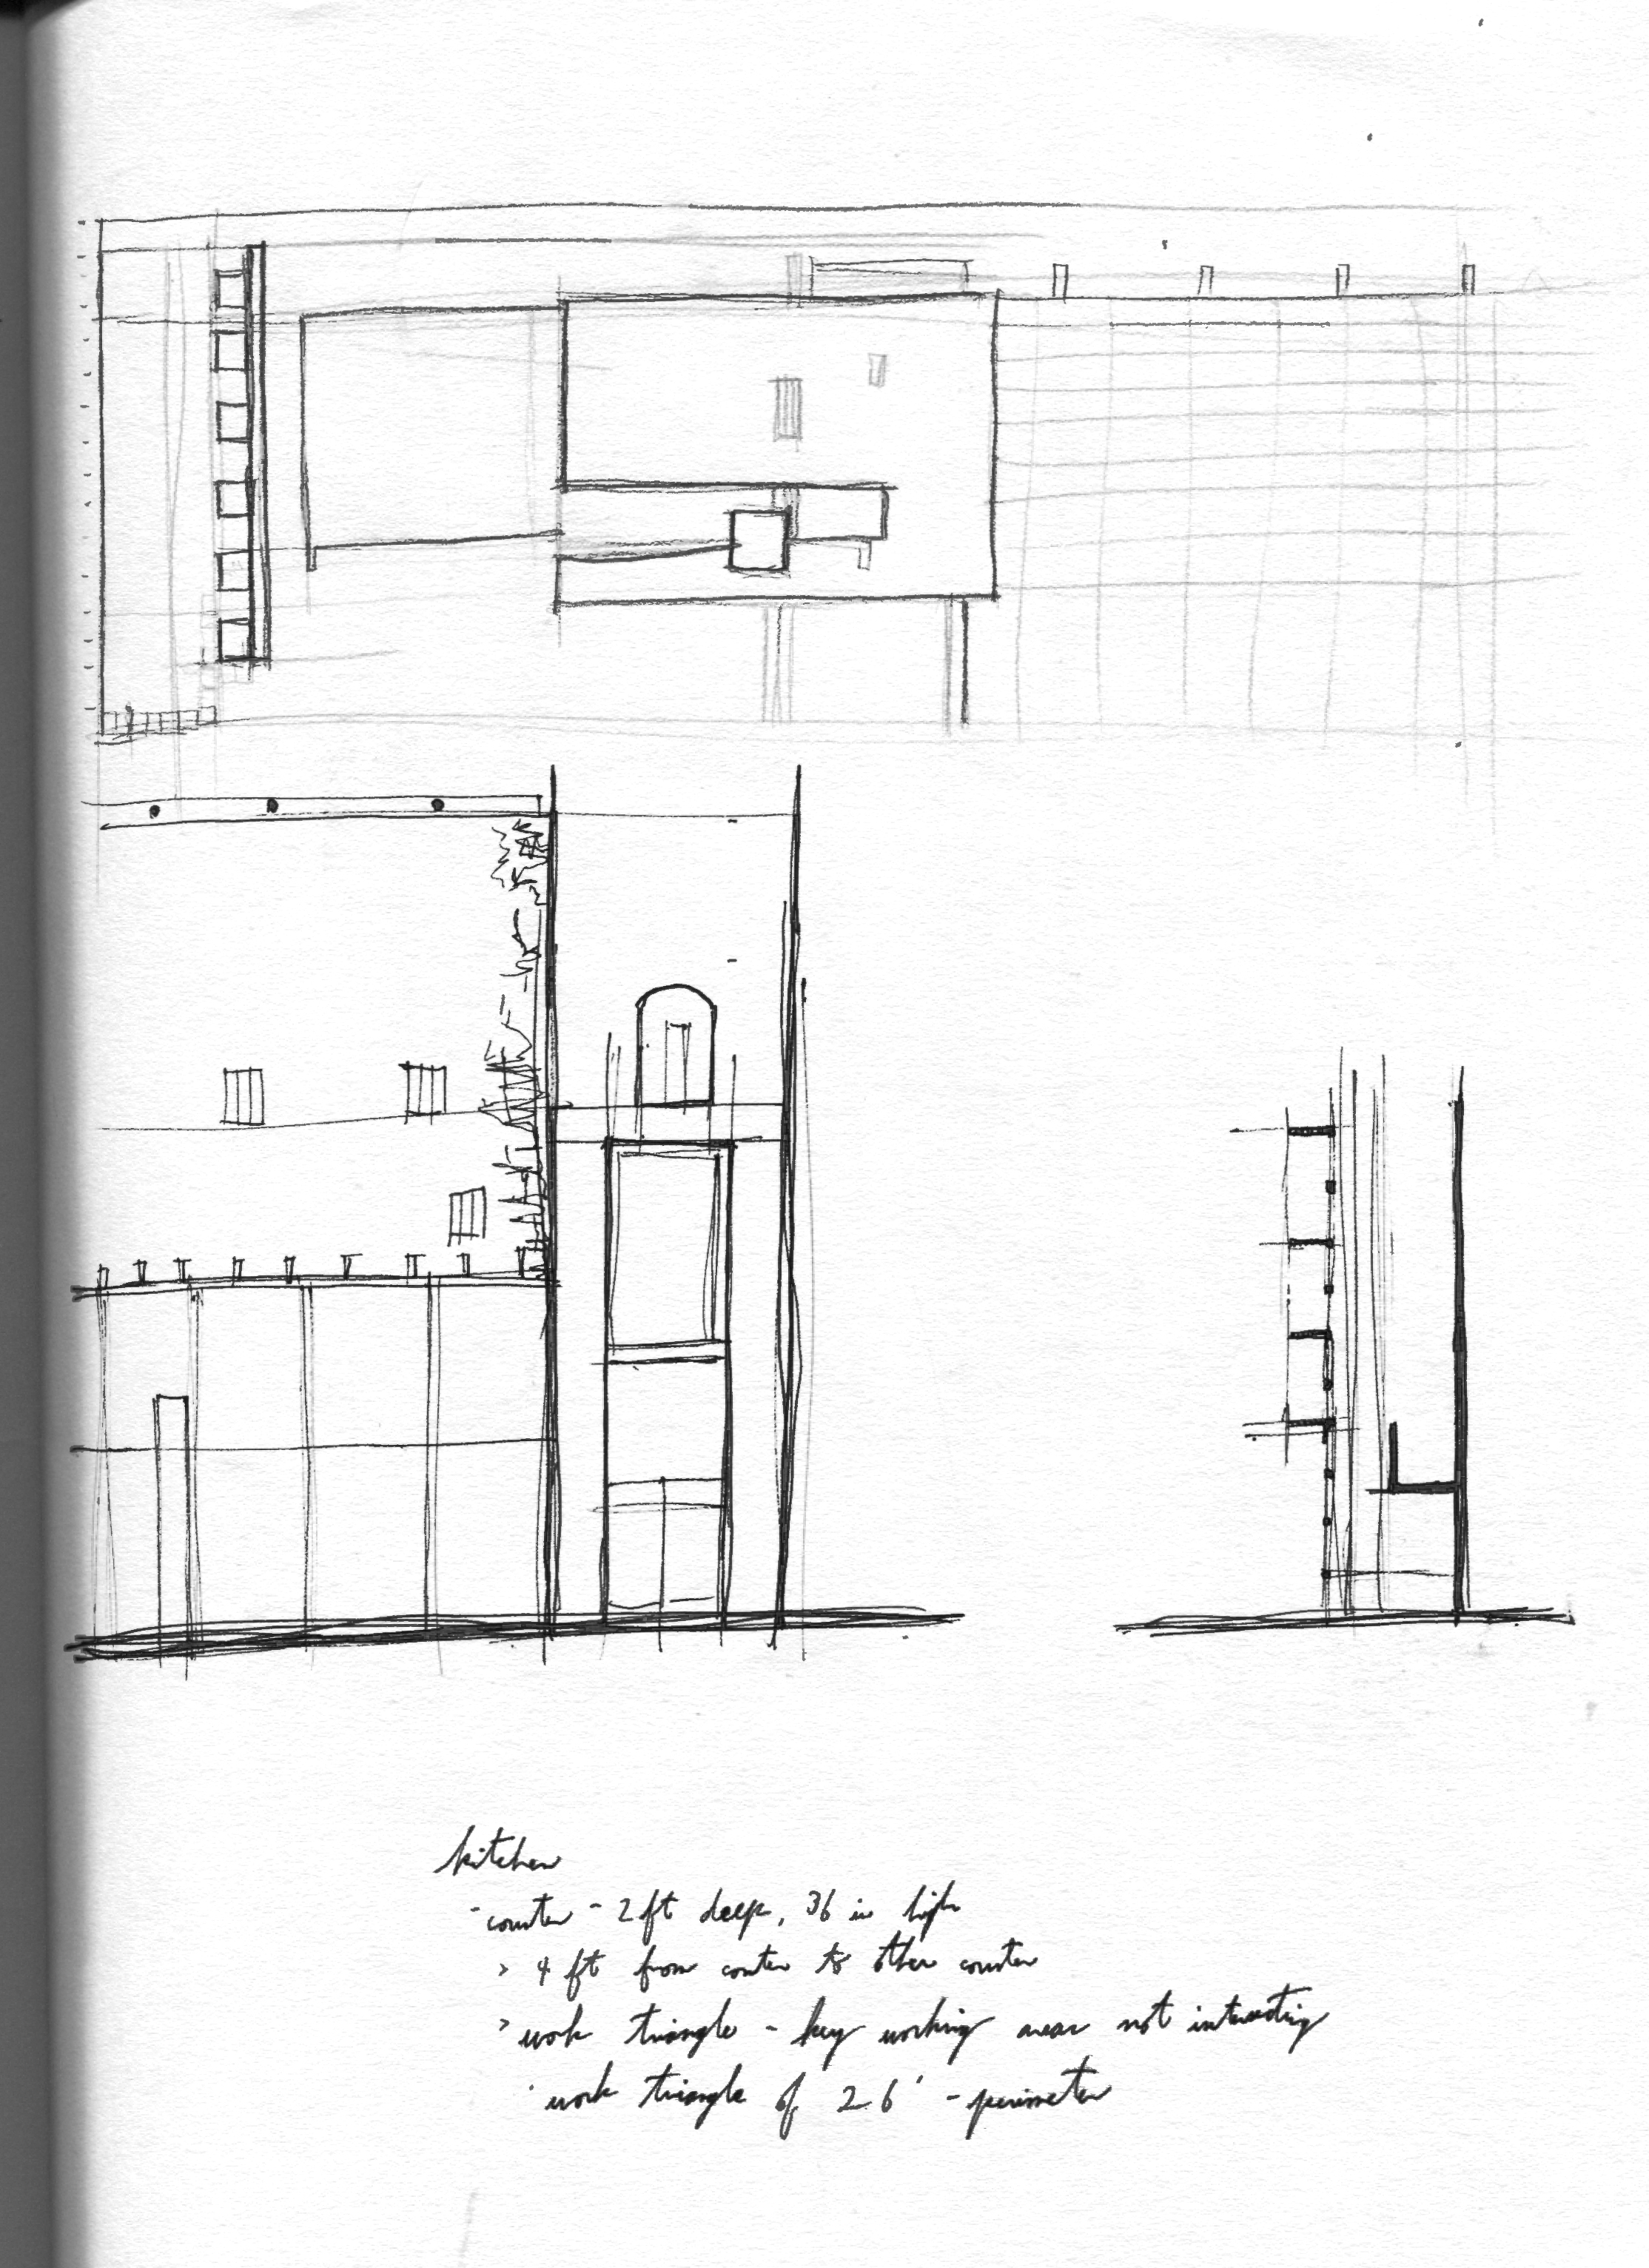 kitchen
- counter - 2 ft deep, 36 in high
> 4 ft from counter to other counter
> work triangle - key working areas not intersecting
· work triangle of 26' - perimeter